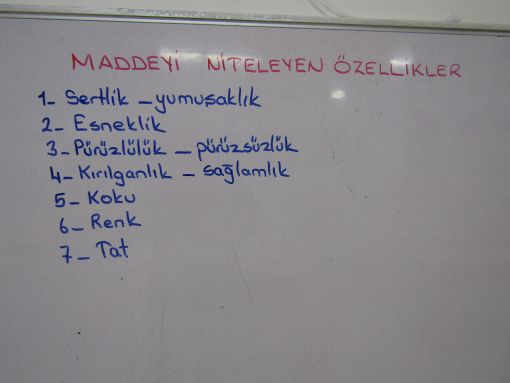 MADDEYİ NİTELEYEN ÖZELLİKLER
1- Sertlik - yumuşaklık
2- Esneklik
3- Pürüzlülük - pürüzsüzlük
4- Kırılganlık - sağlamlık
5- Koku
6- Renk
7- Tat